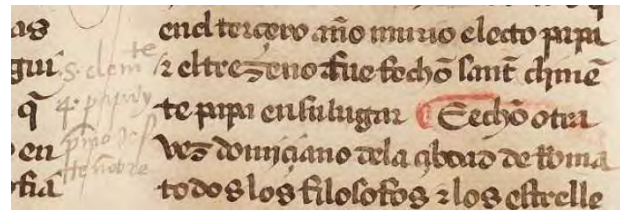 as
gui
q̃
en
fiã
.s. clemte
4. papa y
pmo des
te nobre
enel tercero año murio electo papa
⁊ el trezeno fue fecho sant clime
te papa en su lugar Fecho otra
vez domiciano dela çibdad de Roma
todos los filosofos ⁊ los estrelle